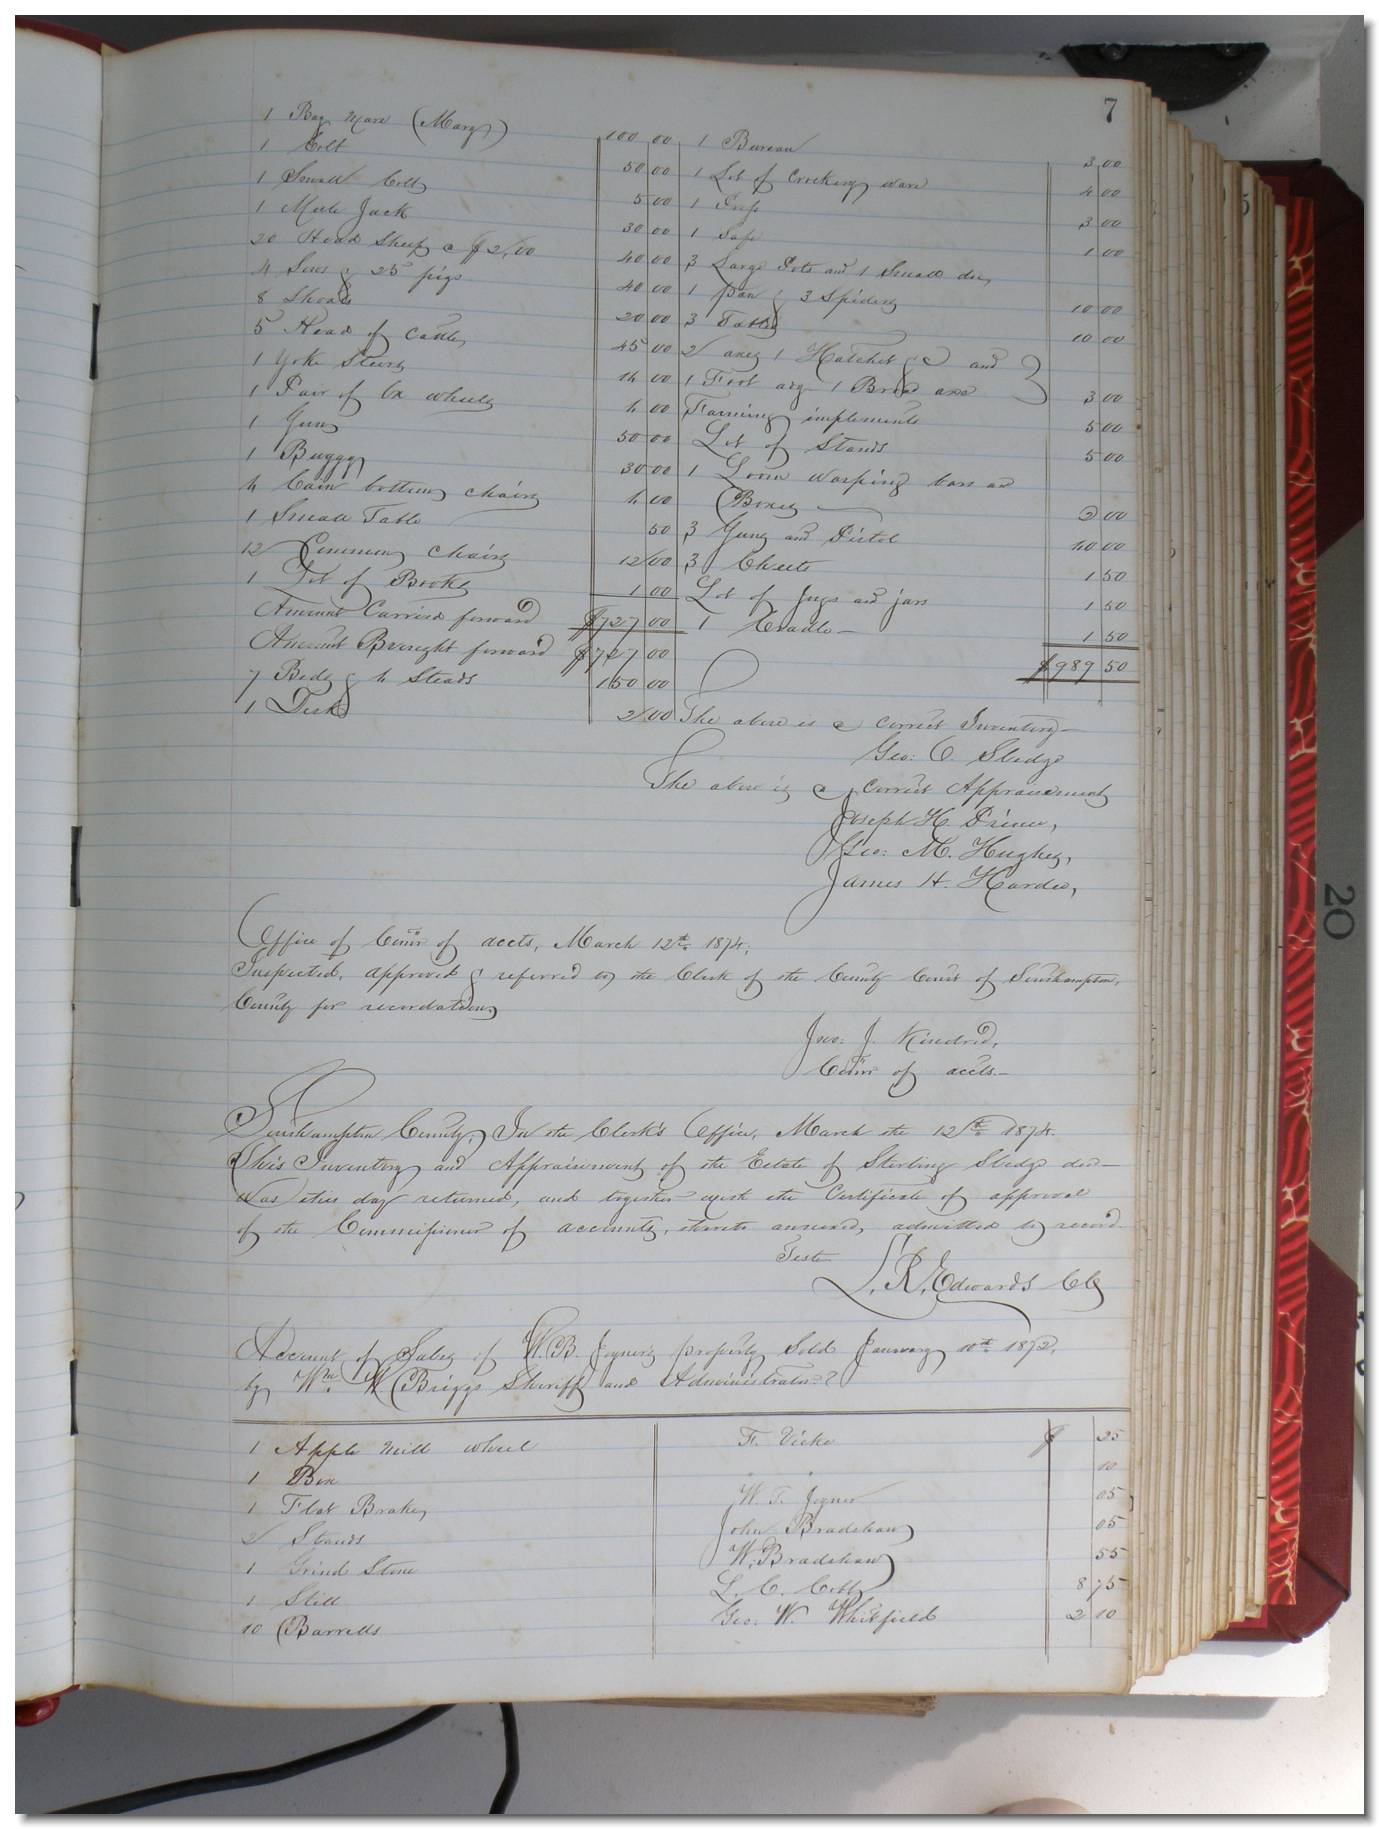 7
1 Bay Mare (Mary) 100 00
1 Colt 50 00
1 Small Colt 5 00
1 Mule Jack 30 00
20 Head Sheep @ $2,00 40 00
4 Sows & 25 pigs 40 00
8 Shoats 20 00
5 Head of Cattle, 45 00
1 Yoke Steers 14 00
1 Pair of Ox wheels 4 00
1 Gun 50 00
1 Buggy 30 00
4 Cain bottom chairs 4 00
1 Small Table 50
12 Common Chairs 12 00
1 Lot of Books 1 00
Amount Carried forward $727 00
Amount Brought forward $727 00
7 Beds & 4 Steads 150 00
1 Desk 2 00
1 Bureau 3 00
1 Lot of Crockery ware 4 00
1 Press 3 00
1 Safe 1 00
3 Large Pots and 1 Small do,
1 pan & 3 Spiders 10 00
3 Tables 10 00
2 axes 1 Hatchet &c and
1 Foot adz 1 Broad axe 3 00
Farming implements 5 00
Lot of Stands 5 00
1 Loom Warping bars and
Boxes 2 00
3 Guns and Pistol 40 00
3 Chests 1 50
Lot of Jugs and jars 1 50
1 Cradle 1 50
$989 50
The above is a correct Inventory
Geo: C. Sledge
The above is a correct Appraisement
Joseph H. Prince,
Geo: M. Hughes,
James H. Hardee,
Office of Comr of accts, March 12th 1874,
Inspected, approved & referred to the Clerk of the County Court of Southampton,
County for recordation
Jno: J. Kindred,
Comr of accts.
Southampton County, In the Clerk's Office, March the 12th 1874.
This Inventory and Appraisement of the Estate of Sterling Sledge dec
was this day returned, and together with the Certificate of approval
of the Commissioner of accounts, thereto annexed, admitted to record.
Teste
L. R. Edwards Clk
Account of Sales of W. B. Joyner's property Sold January 10th 1872,
by Wm. W Briggs Sheriff and Administrator
1 Apple Mill wheel F. Vick $ 25
1 Box " " 10
1 Flat Brake, W. T. Joyner 05
2 Stands John Bradshaw 05
1 Grind Stone W. Bradshaw 55
1 Still L. C. Cobb 8 75
10 Barrells Geo. W. Whitfield 2 10
20